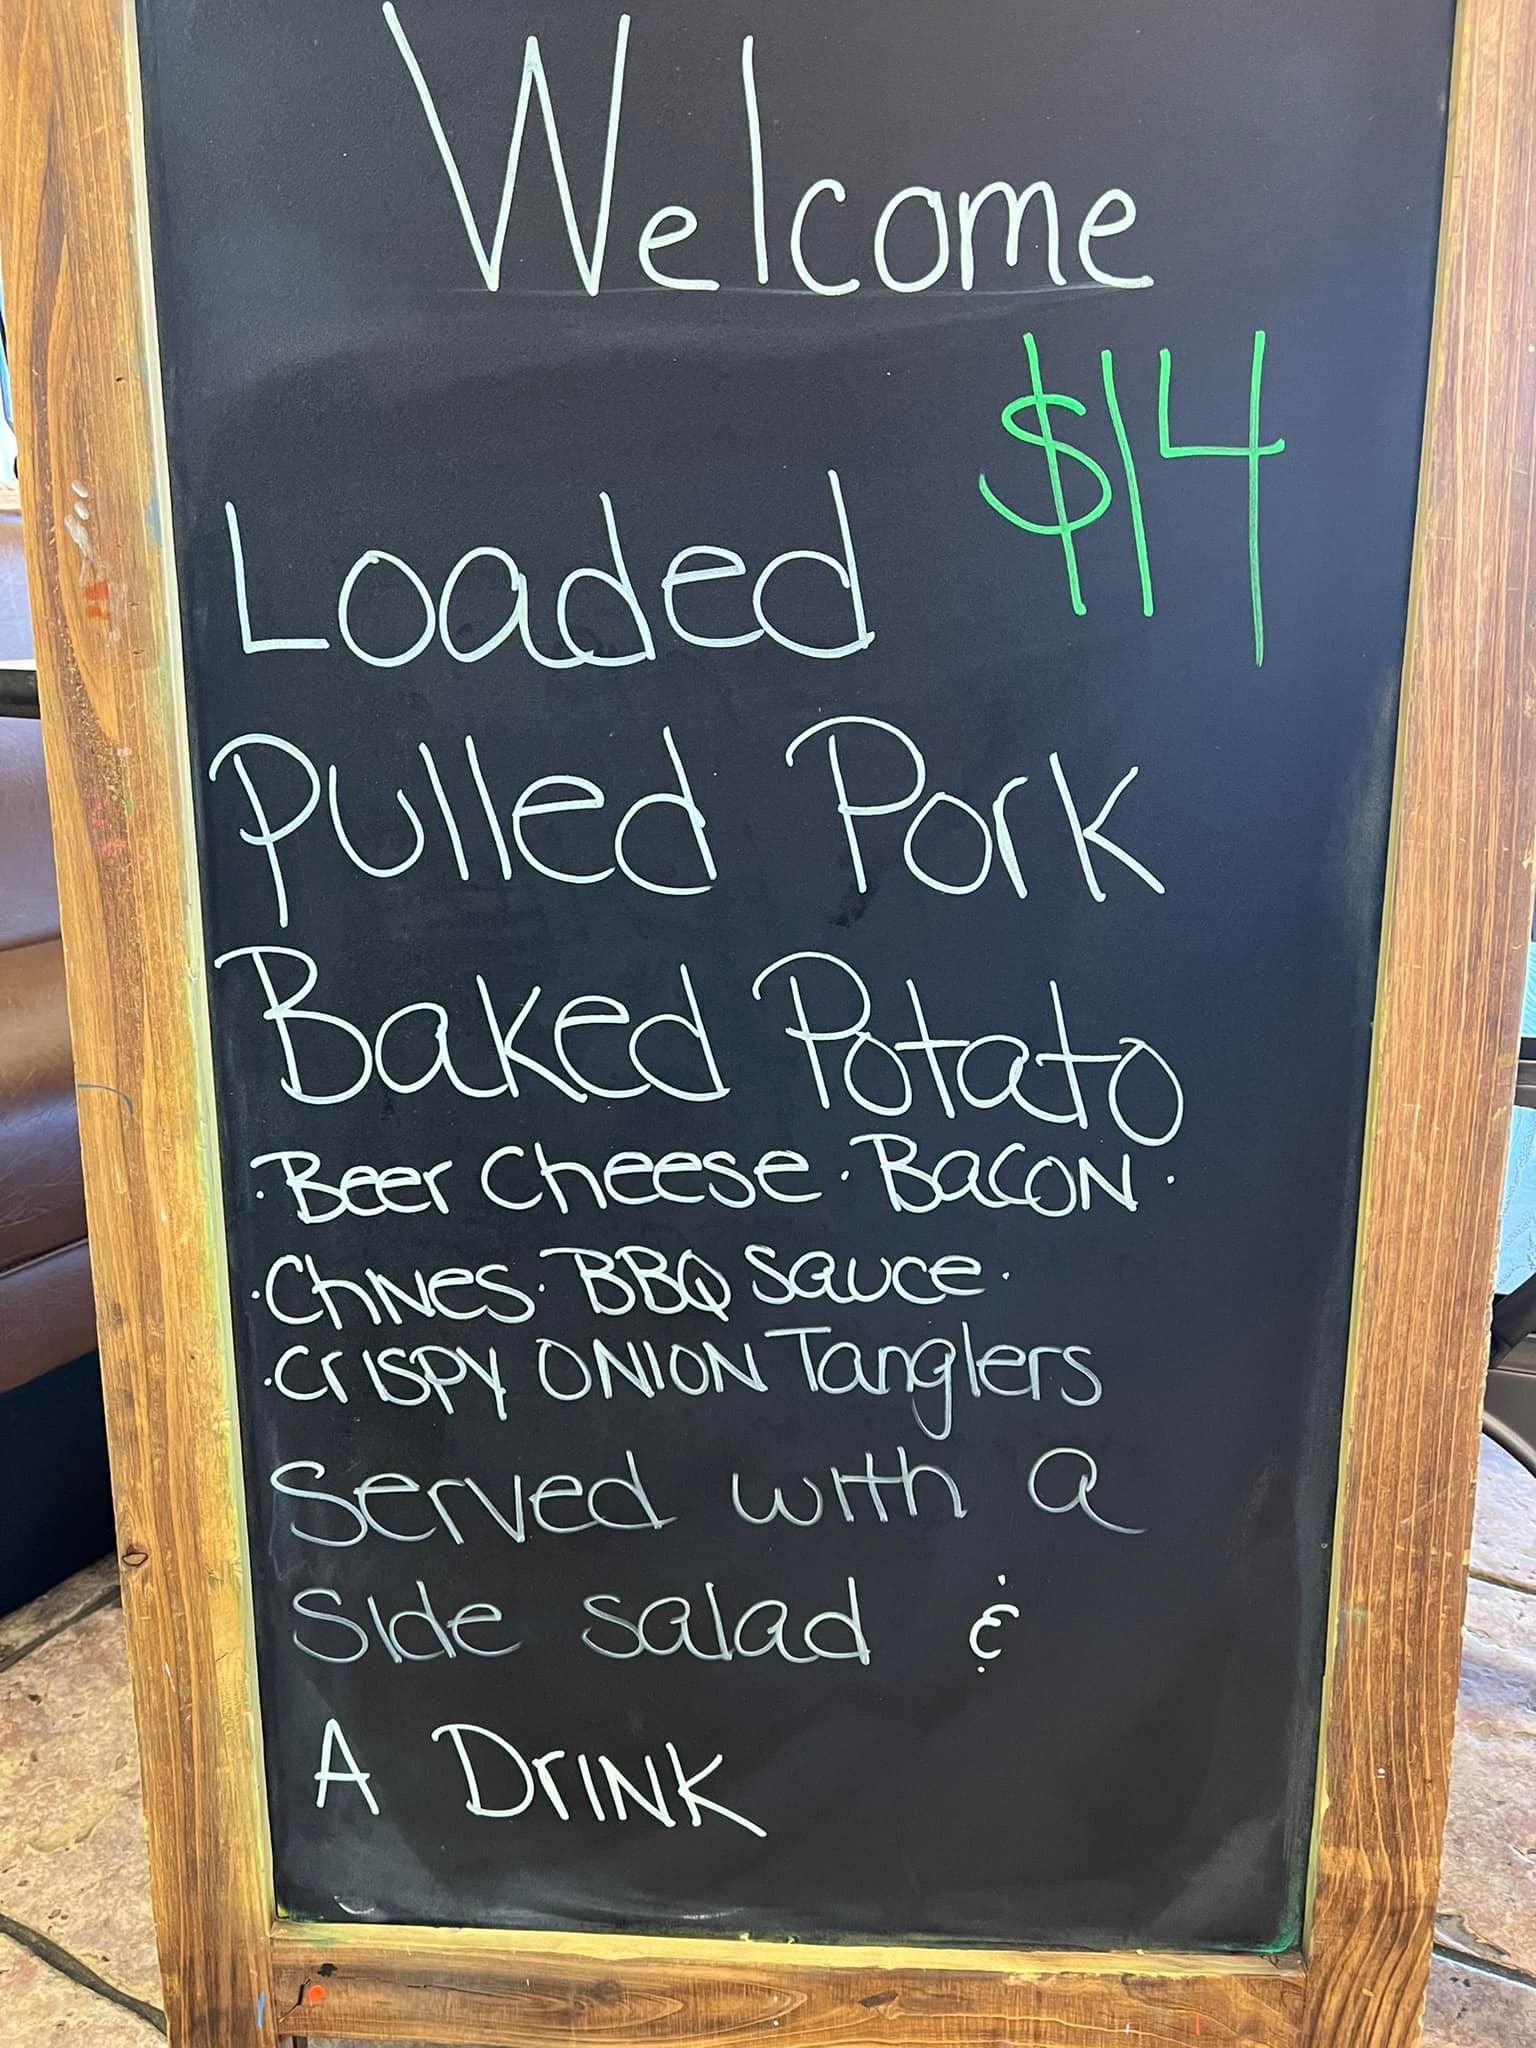 Welcome
$14
Loaded
Pulled Pork
Baked Potato
·Beer Cheese·Bacon·
·Chives·BBQ Sauce·
·Crispy Onion Tanglers
Served with a
Side salad &
A Drink